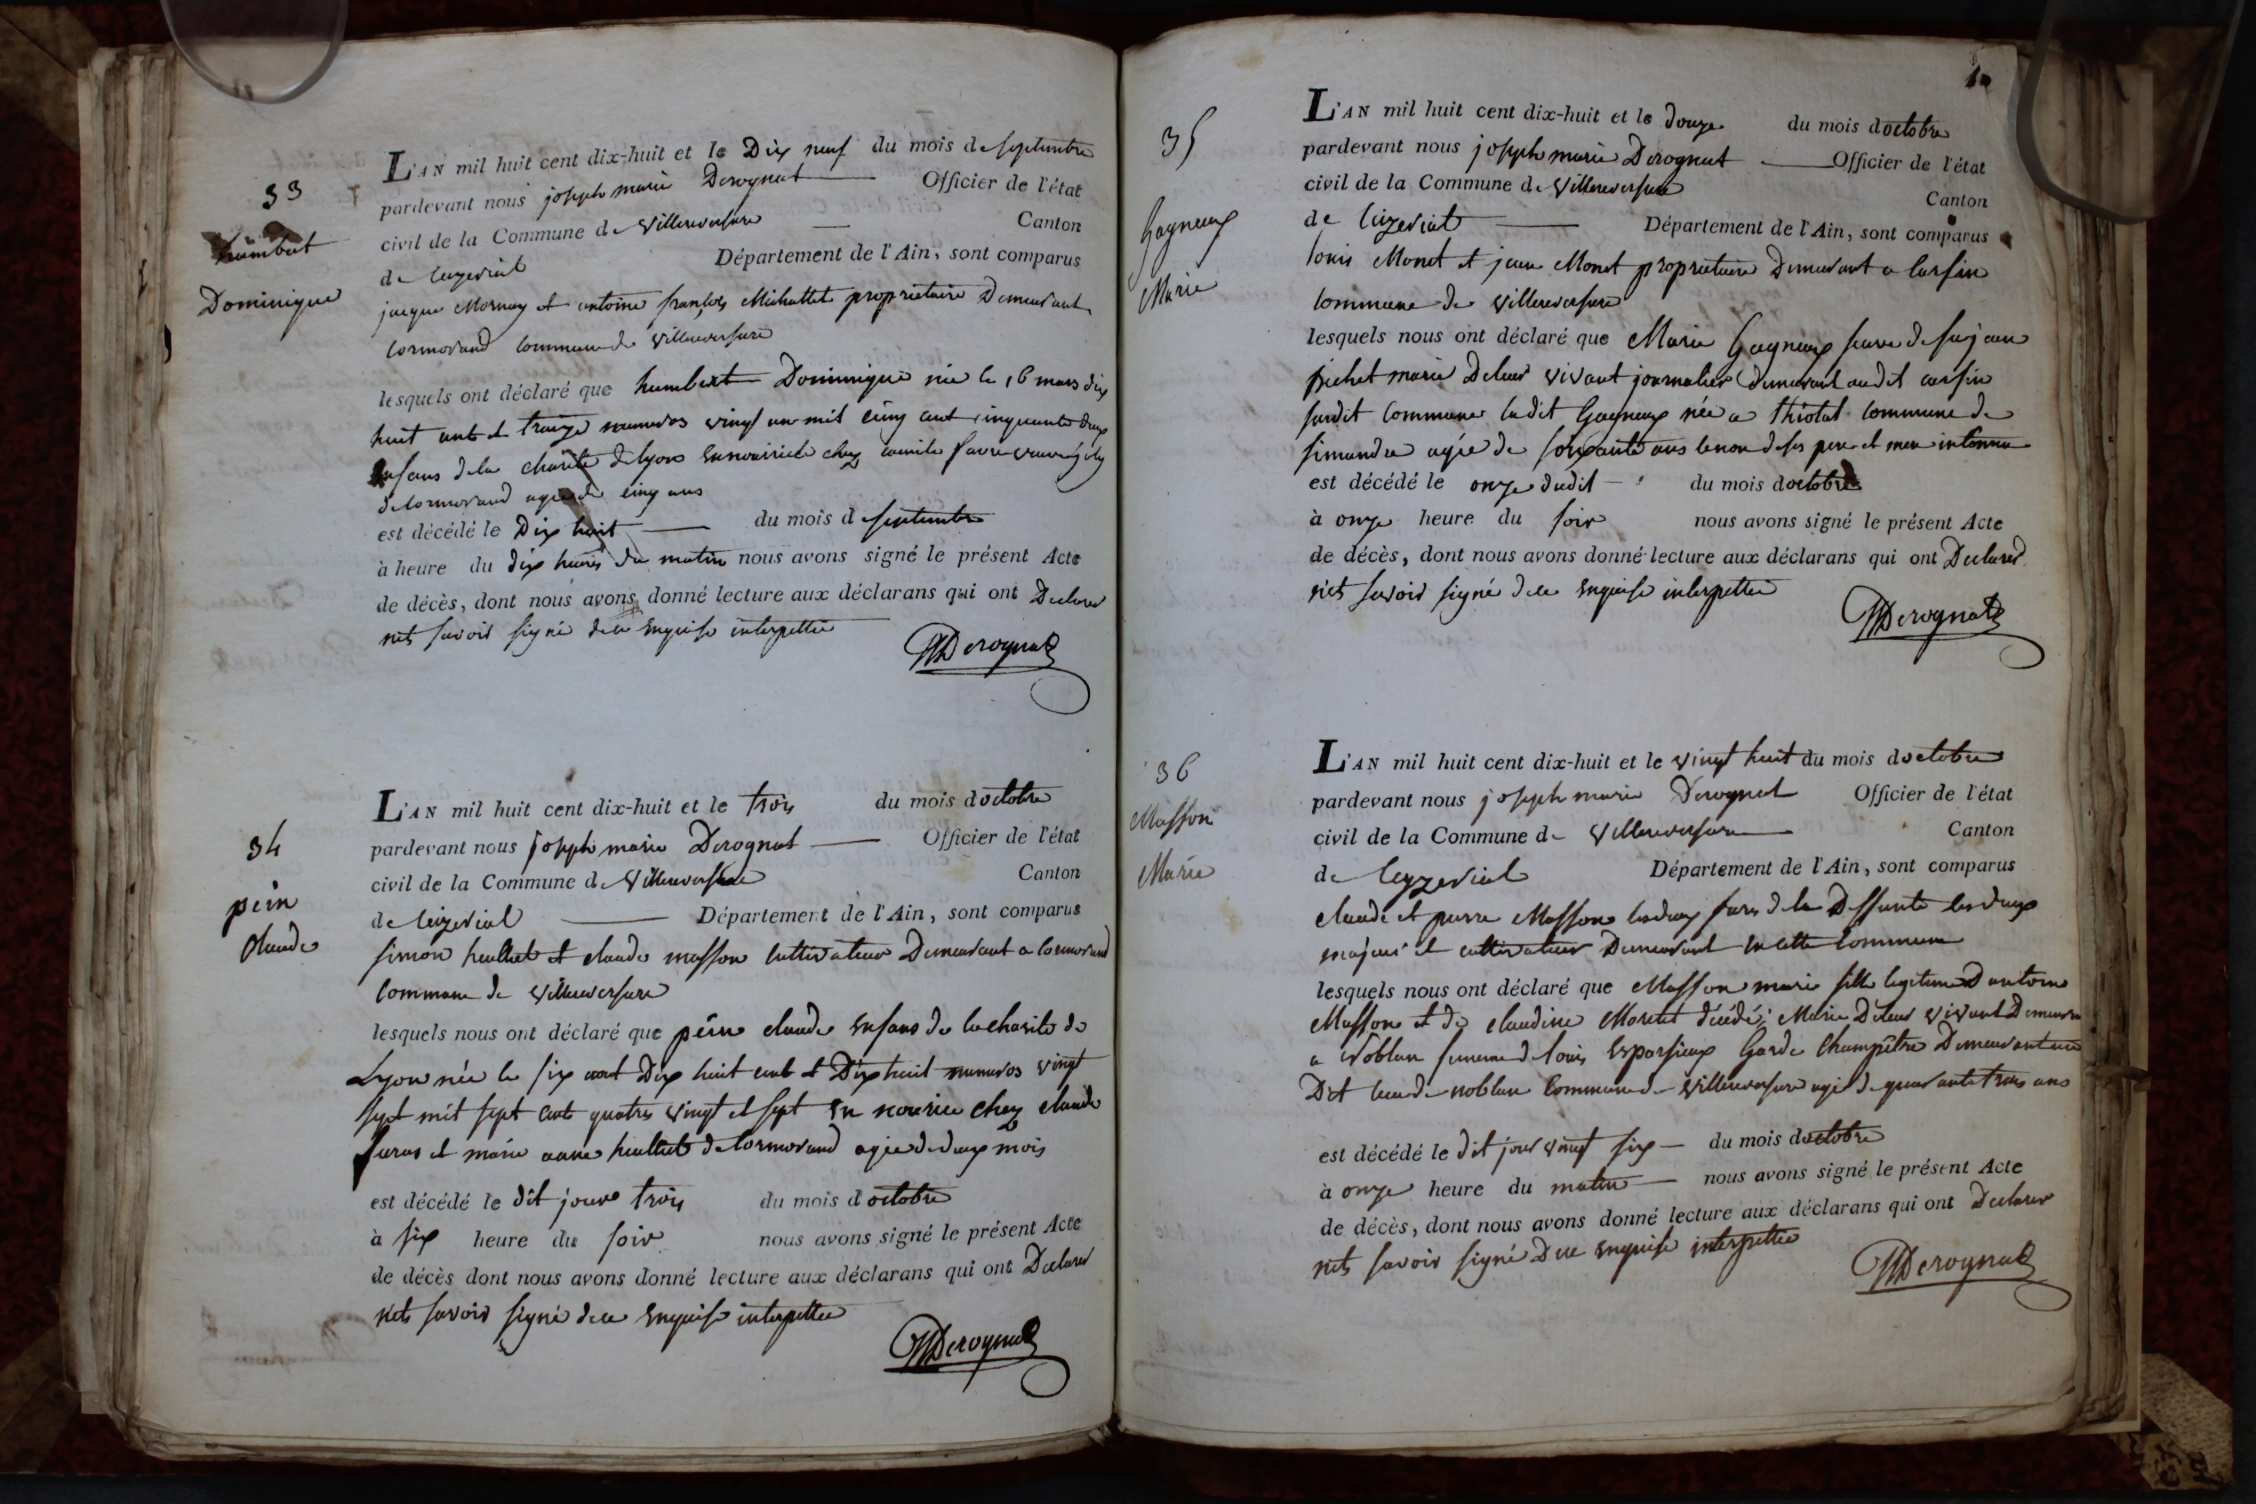 33
humbert
Dominique
L'AN mil huit cent dix-huit et le Dix neuf du mois de septembre
pardevant nous joseph marie Derognat Officier de l'état
civil de la Commune de Villereversure Canton
de Ceyzeriat Département de l'Ain, sont comparus
jacque Mornay et antoine françois Michallet proprietaire Demeurant
Cormorand Commune de Villereversure
lesquels ont déclaré que humbert Dominique née le 16 mars dix
huit cent et traize numeros vingt un mil cinq cent cinquante deux
Enfans de la charité de lyon En nourrice chez favre
de Cormorand agée de cinq ans
est décédé le Dix huit du mois d septembre
à heure du dix heures du matin nous avons signé le présent Acte
de décès, dont nous avons donné lecture aux déclarans qui ont Declarer
nets savoir signé de ce Enquise interpettée
Derognat
34
péin
Claude
L'AN mil huit cent dix-huit et le trois du mois doctobre
pardevant nous joseph marie Derognat Officier de l'état
civil de la Commune de Villereversure Canton
de Ceizeriat Département de l'Ain, sont comparus
simon et claude masson Cultivateur Demeurant a Cormorand
Commune de Villereversure
lesquels nous ont déclaré que péin claude Enfans de la charité de
Lyon née le six aout Dix huit cent et Dix huit numeros vingt
sept mil sept cent quatre vingt et sept En nourice chez claude
et marie anne de Cormorand agée de deux mois
est décédé le dit jour trois du mois d octobre
à six heure du soir nous avons signé le présent Acte
de décès dont nous avons donné lecture aux déclarans qui ont Declarer
nets savoir signé de ce Enquise interpettée
Derognat
35
Gagneux
Marie
L'AN mil huit cent dix-huit et le douze du mois doctobre
pardevant nous joseph marie Derognat Officier de l'état
civil de la Commune de Villereversure Canton
de Ceizeriat Département de l'Ain, sont comparus
louis Monet et jean Monet proprietaire Demeurant a Carsin
Commune de Villereversure
lesquels nous ont déclaré que Marie Gagneux de feu jean
pichet marie Deleur vivant journalier demeurant audit carsin
sudit Commune ladit Gagneux née a thiolet commune de
simandre agée de soixante ans le nom de ses pere et mere inconnu
est décédé le onze dudit du mois doctobre
à onze heure du soir nous avons signé le présent Acte
de décès, dont nous avons donné lecture aux déclarans qui ont Declarer
nets savoir signé de ce Enquise interpettée
Derognat
36
Masson
Marie
L'AN mil huit cent dix-huit et le vingt huit du mois doctobre
pardevant nous joseph marie Derognat Officier de l'état
civil de la Commune de Villereversure Canton
de Ceyzeriat Département de l'Ain, sont comparus
claude et pierre Masson les deux de la Deffunte les deux
majeur et cultivateur Demeurant en cette Commune
lesquels nous ont déclaré que Masson marie fille legitime D antoine
Masson et de claudine Moret décédé Marie Deleur vivant Demeurant
a Noblan de louis Garde Champêtre Demeurant au
Dit lieu de noblan Commune de Villereversure agé de quarante trois ans
est décédé le dit jour vingt six du mois doctobre
à onze heure du matin nous avons signé le présent Acte
de décès, dont nous avons donné lecture aux déclarans qui ont Declarer
nets savoir signé De ce Enquise interpettée
Derognat